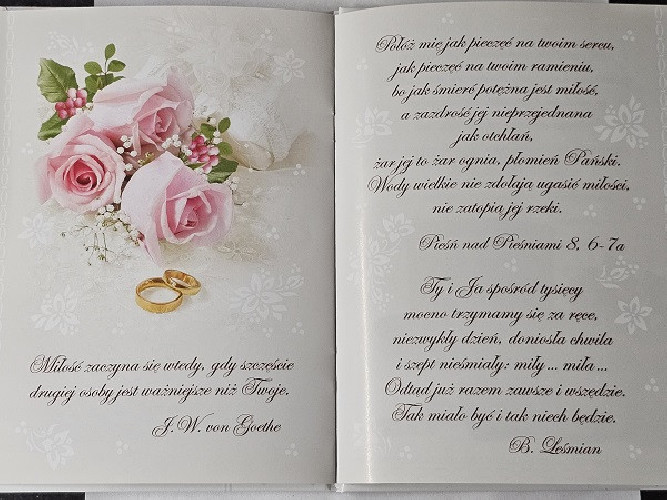 Miłość zaczyna się wtedy, gdy szczęście
drugiej osoby jest ważniejsze niż Twoje.
J. W. von Goethe
Połóż mię jak pieczęć na twoim sercu,
jak pieczęć na twoim ramieniu,
bo jak śmierć potężna jest miłość,
a zazdrość jej nieprzejednana
jak otchłań,
żar jej to żar ognia, płomień Pański.
Wody wielkie nie zdołają ugasić miłości,
nie zatopią jej rzeki.
Pieśń nad Pieśniami 8, 6-7a
Ty i Ja spośród tysięcy
mocno trzymamy się za ręce,
niezwykły dzień, doniosła chwila
i szept nieśmiały: miły ... miła ...
Odtąd już razem zawsze i wszędzie.
Tak miało być i tak niech będzie.
B. Leśmian